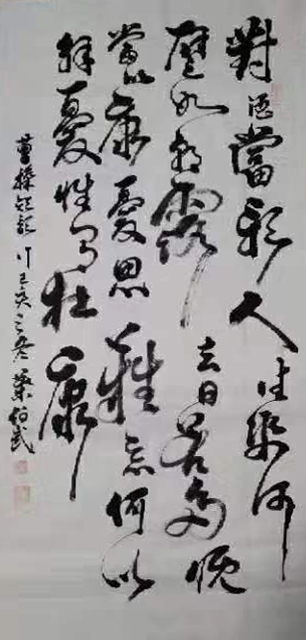 對酒當歌人生幾何
譬如朝露去日苦多慨
當以慷憂思難忘何以
解憂惟有杜康
曹操短歌行己亥之冬伯武